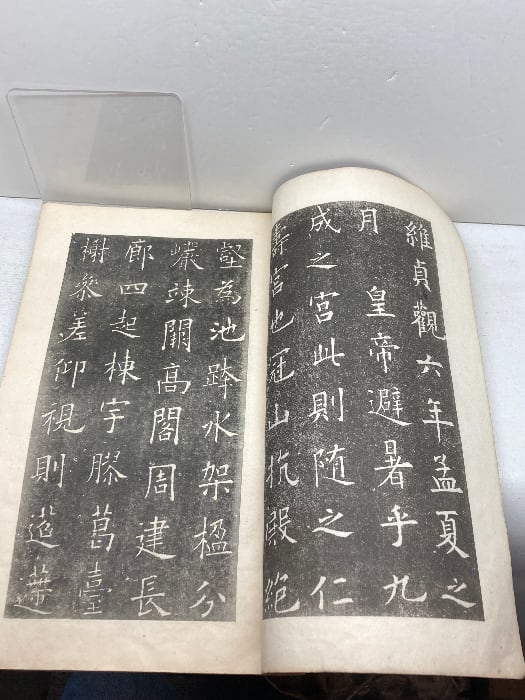 維貞觀六年孟夏之
月 皇帝避暑乎九
成之宮此則随之仁
壽宮也冠山抗殿絕
壑為池跨水架楹分
巗竦闕高閣周建長
廊四起棟宇膠葛臺
榭參差仰視則迢遰